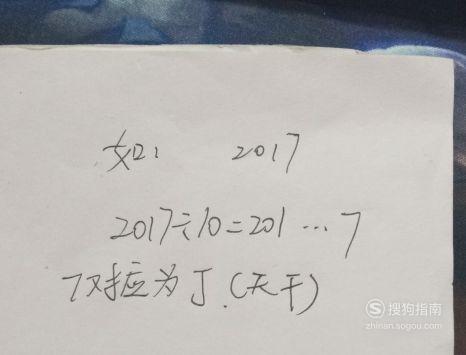 如: 2017
2017÷10=201…7
7对应为丁.(天干)
搜狗指南
zhinan.sogou.com